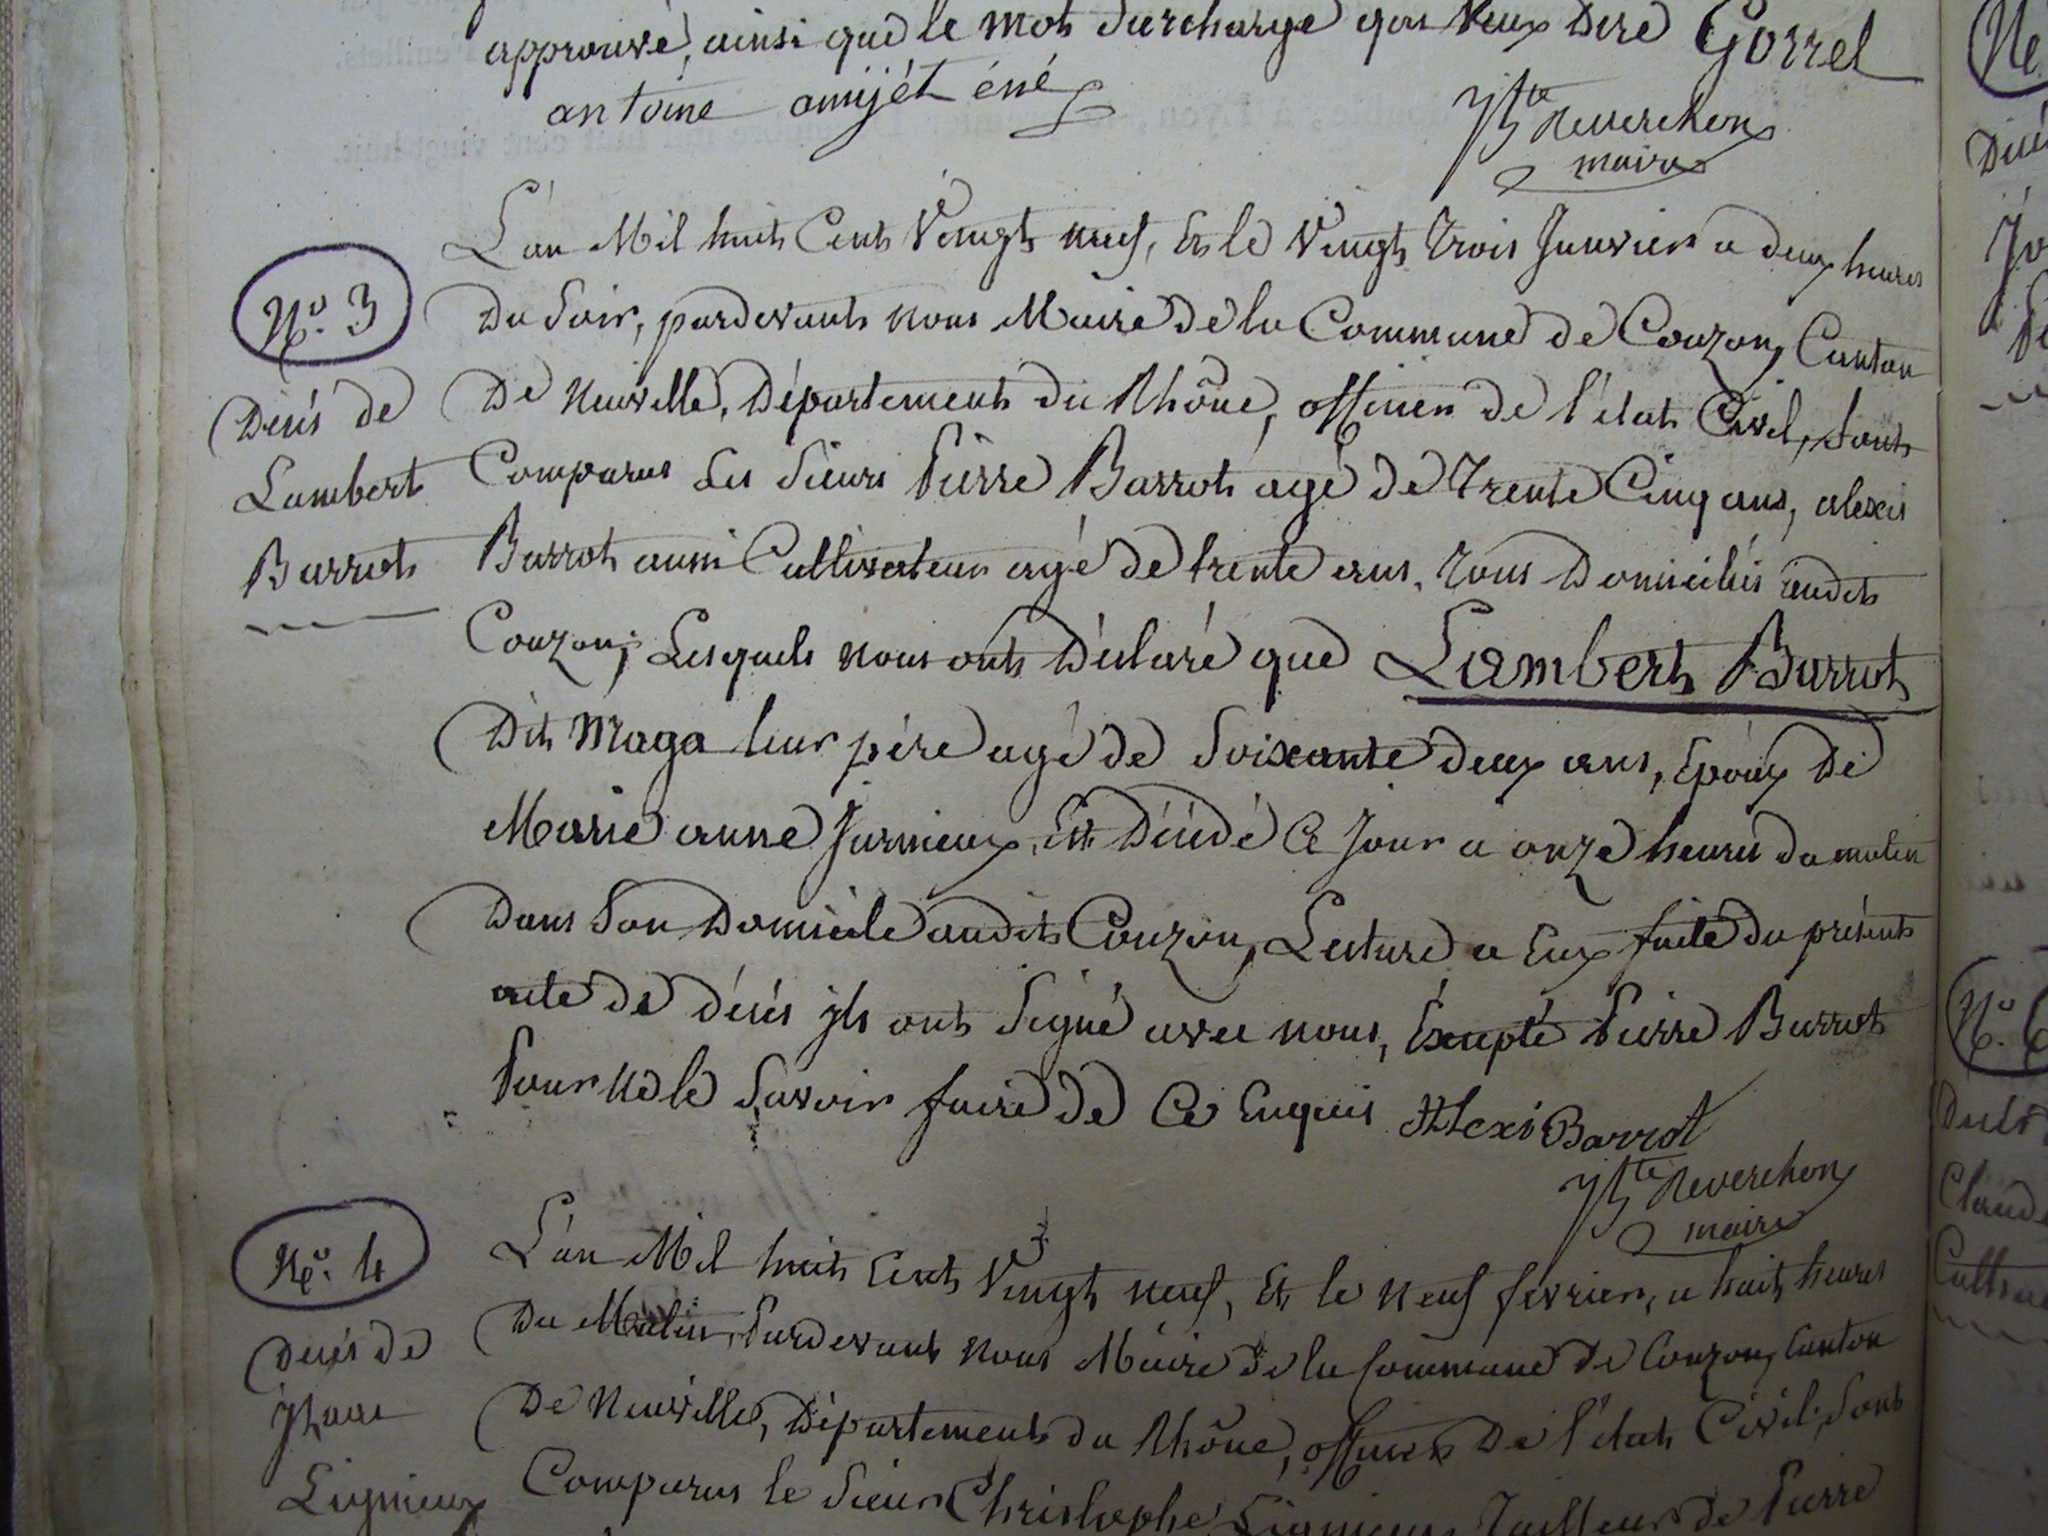 approuvé, ainsi que le mot surchargé qui veux dire Gorrel
antoine amijét éné
Jh Bte Reverchon
maire
L'an Mil huit Cent Vingt neuf, Et le Vingt trois Janvier a deux heures
N.º 3
Du Soir, pardevant nous Maire de la Commune de Couzon, Canton
Décés de
De Neuville, Département du Rhône, officier de l'état Civil, sont
Lambert
Comparus Les Sieurs Pierre Barrot agé de trente Cinq ans, alexis
Barrot
Barrot aussi Cultivateur agé de trente ans, tous Domiciliés audit
Couzon; Lesquels nous ont Déclaré que Lambert Barrot
Dit Maga leur pére agé de Soixante deux ans, Epoux De
Marie anne Jurnieux, Est Décédé Ce Jour a onze heures du matin
Dans Son Domicile audit Couzon, Lecture a Eux faite du présent
acte de décés ils ont Signé avec nous, Éxcepté Pierre Barrot
Pour ne le Savoir faire de Ce Enquis Alexi Barrot
Jh Bte Reverchon
maire
N.º 4
L'an Mil huit Cent Vingt neuf, Et le neuf février, a huit heures
Du Matin, Pardevant nous Maire de la Commune de Couzon, Canton
Décés de
De Neuville, Département du Rhône, officier De l'état Civil, Sont
Lignieux
Comparus le Sieur Christophe Lignieux Tailleur de Pierre
N.º
Décés
Claude